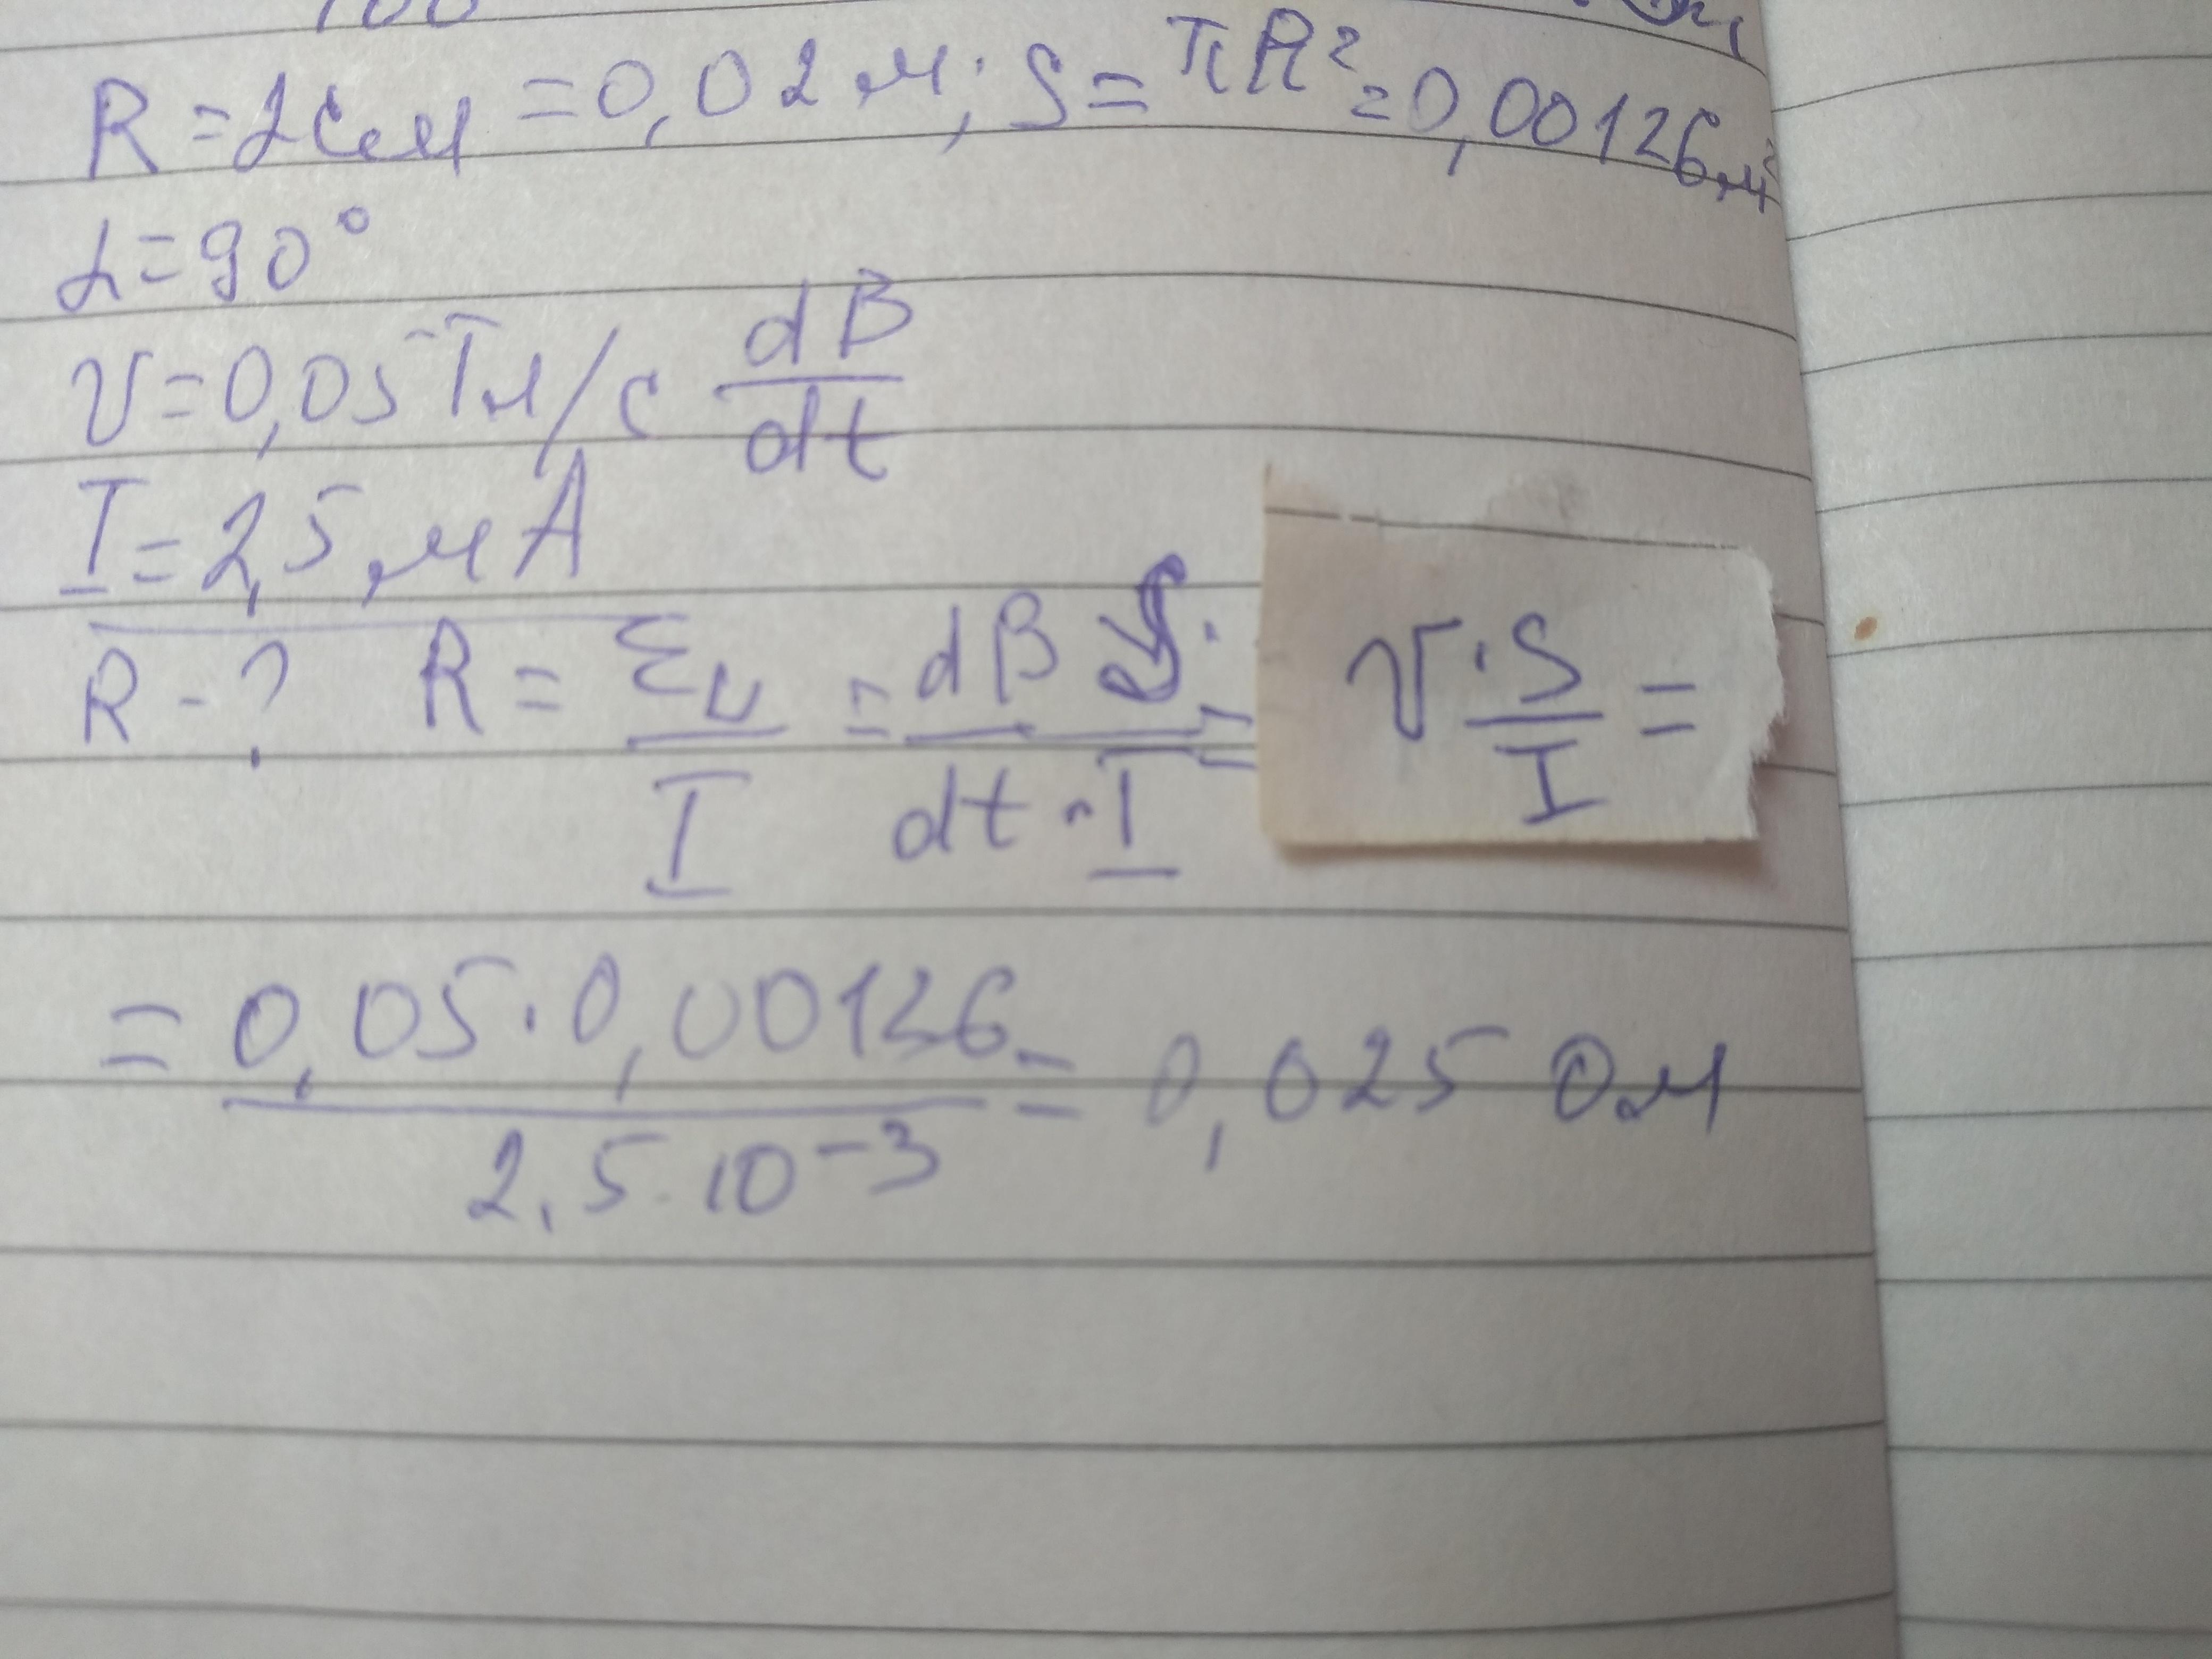 100
R = 2 см = 0,02 м; S = πR² = 0,00126 м²
α = 90°
v = 0,05 Тл/с dB/dt
I = 2,5 мА
R - ? R = Ei/I = dB S/dt · I = v · S/I =
= 0,05 · 0,00126/2,5 · 10⁻³ = 0,025 Ом